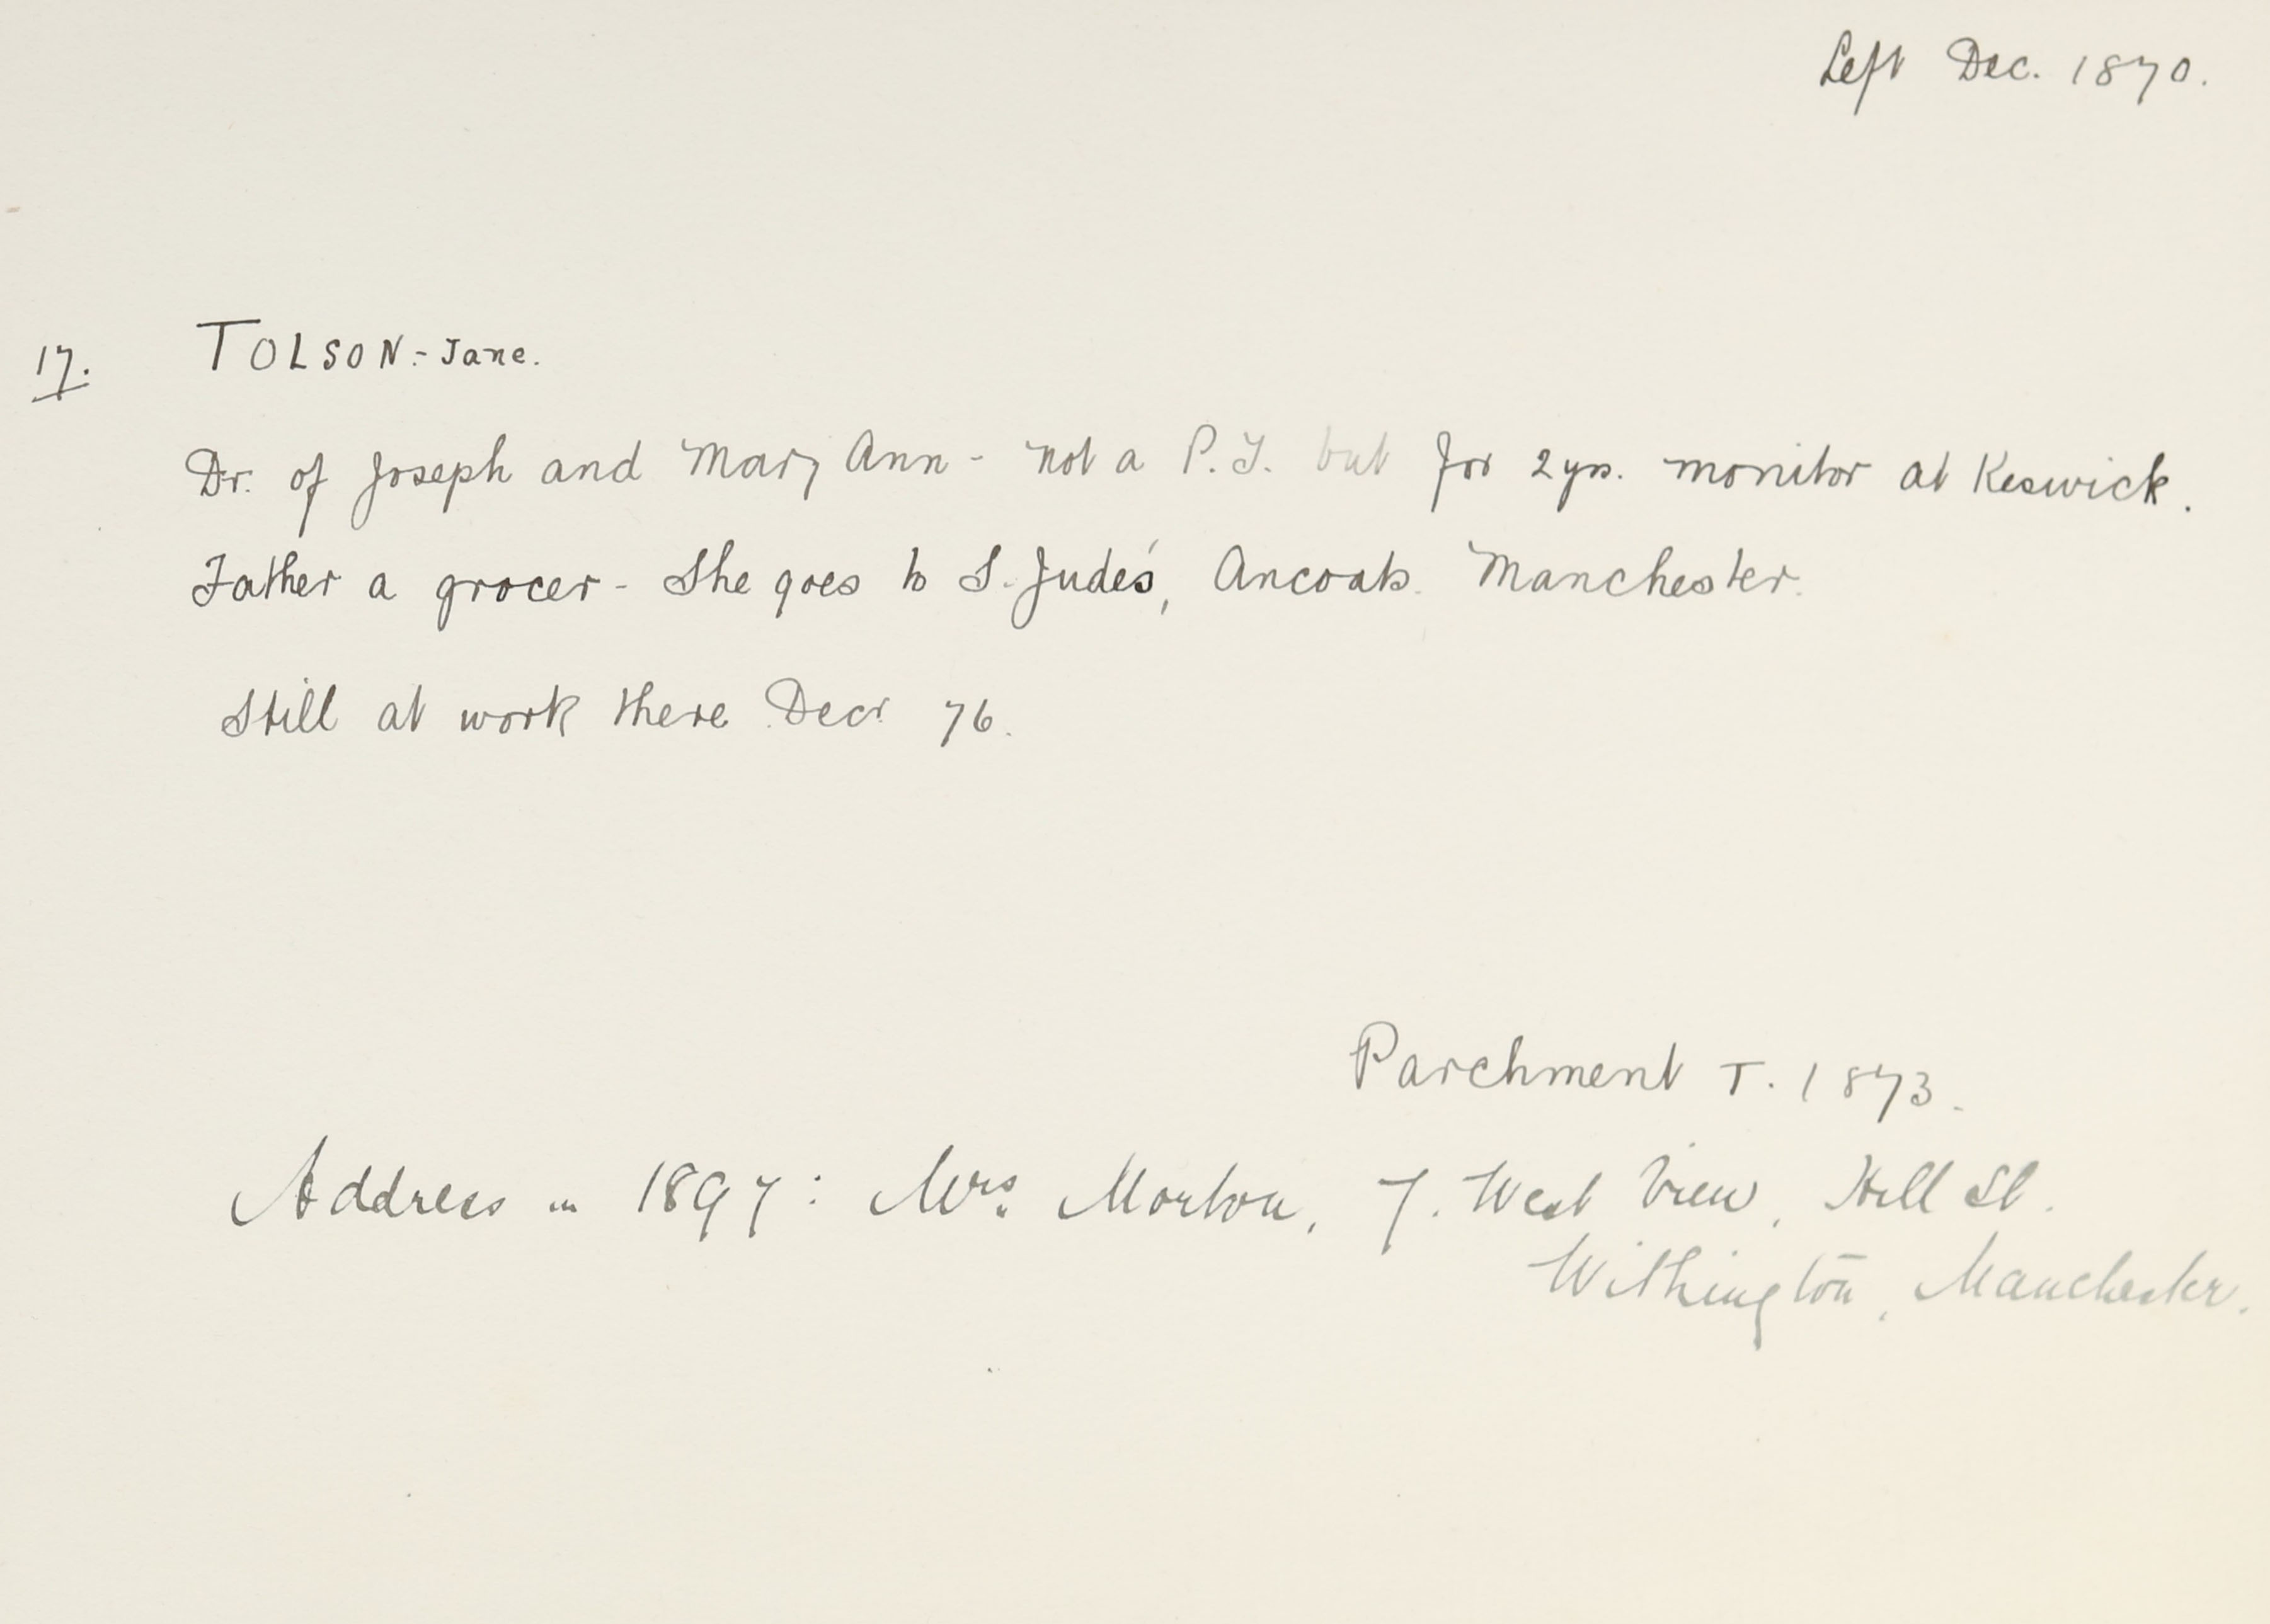 Left Dec. 1870.
17. TOLSON:- Jane.
Dr. of Joseph and Mary Ann - not a P.T. but for 2 yrs. monitor at Keswick.
Father a grocer - She goes to S. Jude's, Ancoats. Manchester.
Still at work there Decr. 76.
Parchment T. 1873.
Address in 1897: Mrs. Morton, 7. West View, Hill St.
Withington, Manchester.